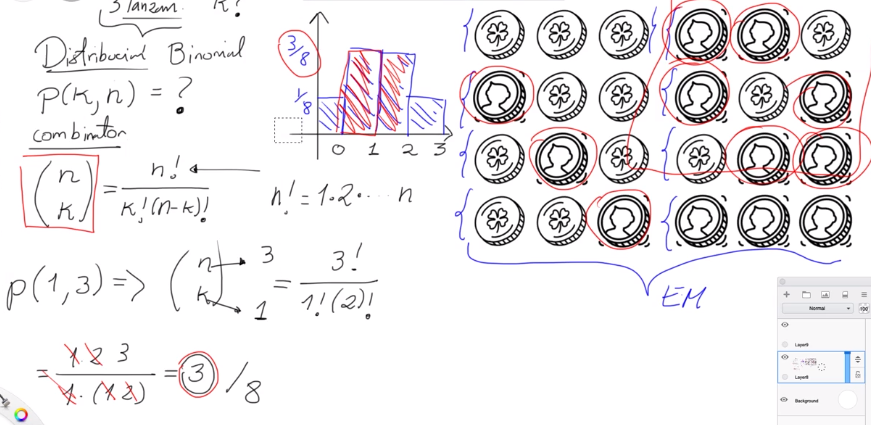 3 lanzam. K?
Distribución Binomial
P(k,n) = ?
combinator
(n k) = n! / k!(n-k)!
n! = 1·2·... n
P(1,3) => (n k) → 3 → 1 = 3! / 1!(2)!
= 1 2 3 / 1·(1 2) = 3 / 8
3/8
1/8
0 1 2 3
EM
Normal
100
Layer9
Layer8
Background